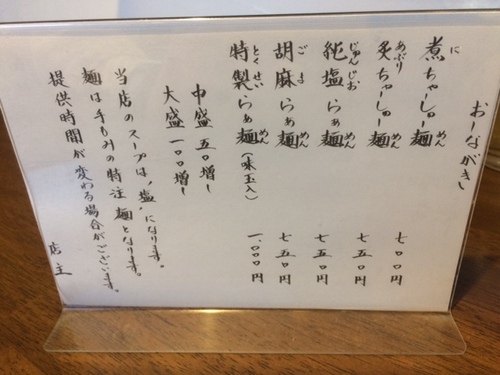 おーながきし
煮ちゃーしゅー麺 七〇〇円
炙ちゃーしゅー麺 七五〇円
純塩らぁ麺 七五〇円
胡麻らぁ麺 七五〇円
特製らぁ麺（味玉入） 一、〇〇〇円
中盛 五〇増し
大盛 一〇〇増し
当店のスープは、"塩"になります。
麺は手もみの特注麺となります。
提供時間が変わる場合がございます。
店主